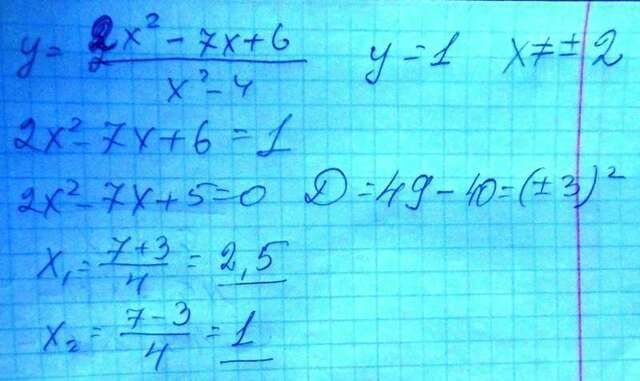 y = 2x² - 7x + 6 / x² - 4    y = 1    x ≠ ± 2
2x² - 7x + 6 = 1
2x² - 7x + 5 = 0    D = 49 - 40 = (± 3)²
x₁ = 7 + 3 / 4 = 2,5
x₂ = 7 - 3 / 4 = 1